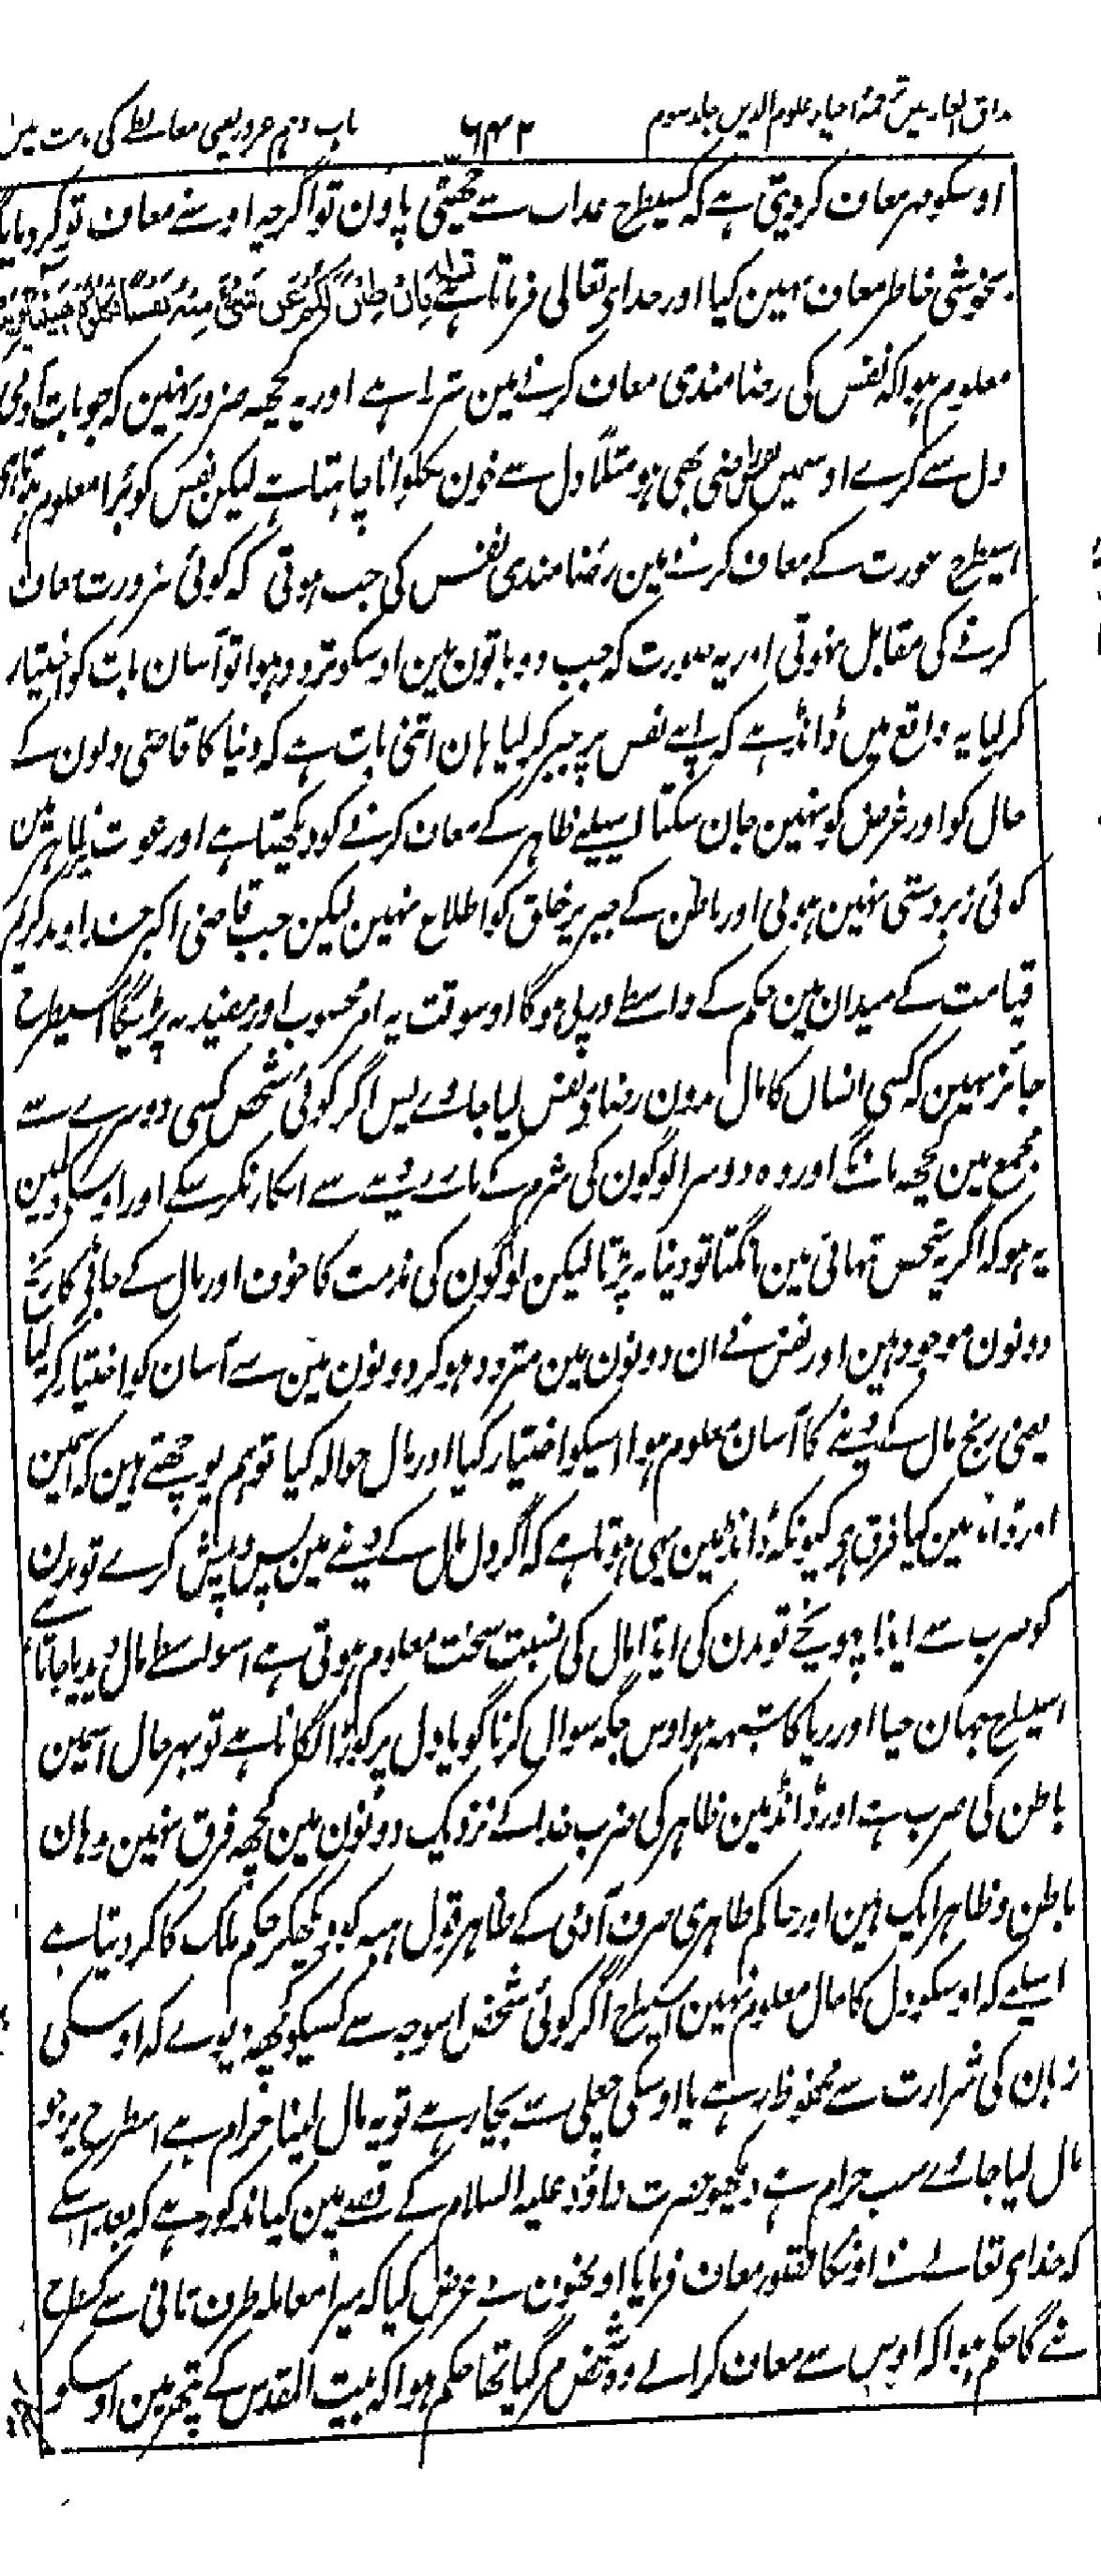 مذاق العارفین ترجمۂ احیاء علوم الدین جلد سوم ۶۴۲ باب دہم غرور یعنی مغالطے کی
اوسکو مہر معاف کر دیتی ہے کہ کسیطرح عذاب سے چھٹی پاون تو اگرچہ اوسنے معاف تو کر دیا
بخوشی خاطر معاف نہین کیا اور خدای تعالی فرماتا ہے فان طبن لکم عن شیٔ منہ نفسا فکلوہ
معلوم ہوا کہ نفس کی رضامندی معاف کرنے مین شرط ہے اور یہ کچھ ضرور نہین کہ جو بات آدمی
دل سے کرے اوسمین نفس راضی بھی ہو مثلاً دل سے خون نکلوانا چاہتا ہے لیکن نفس کو بُرا معلوم ہوتا ہی
اسیطرح عورت کے معاف کرنے مین رضامندی نفس کی جب ہوتی کہ کوئی ضرورت معاف
کرنے کی مقابل نہوتی اور یہ صورت کہ جب دو باتون مین اوسکو تردد ہوا تو آسان بات کو اختیار
کر لیا یہ واقع مین ڈانڈ ہے کہ اپنے نفس پر جبر کر لیا ہان اتنی بات ہے کہ دنیا کا قاضی دلون کے
حال کو اور غرض کو نہین جان سکتا اسیلیے ظاہر کے معاف کرنے کو دیکھتا ہے اور عورت پر ظاہر مین
کوئی زبردستی نہین ہوئی اور باطن کے جبر پر خلق کو اطلاع نہین لیکن جب قاضی اکبر خداوند کریم
قیامت کے میدان مین حکم کے واسطے در پی ہو گا اوسوقت یہ امر محسوب اور مفید نہ پڑیگا اسیطرح
جائز نہین کہ کسی انسان کا مال بدون رضای نفس لیا جاوے پس اگر کوئی شخص کسی دوسرے سے
مجمع مین کچھ مانگے اور وہ دوسرا لوگون کی شرم کے مارے دینے سے انکار نکر سکے اور اوسکے دلمین
یہ ہو کہ اگر یہ شخص تنہائی مین مانگتا تو دینا نہ پڑتا لیکن لوگون کی مذمت کا خوف اور مال کے جانیکا رنج
دونون موجود ہین اور نفس نے ان دونون مین متردد ہو کر دونون مین سے آسان کو اختیار کر لیا
یعنی رنج مال کے دینے کا آسان معلوم ہوا اسیکو اختیار کیا اور مال حوالہ کیا تو ہم پوچھتے ہین کہ اسمین
اور ڈانڈ مین کیا فرق ہی کیونکہ ڈانڈ مین یہی ہوتا ہے کہ اگر دل مال کے دینے مین پس و پیش کرے تو بدن
کو ضرب سے ایذا پہونچے تو بدن کی ایذا مال کی نسبت سخت معلوم ہوتی ہے اسواسطے مال دیدیا جاتا ہے
اسیطرح جہان حیا اور ریا کا شبہہ ہو اوس جگہ سوال کرنا گویا دل پر کوڑا لگانا ہے تو بہرحال اسمین
باطن کی ضرب ہے اور ڈانڈ مین ظاہر کی ضرب خدا کے نزدیک دونون مین کچھ فرق نہین وہان
باطن و ظاہر ایک ہین اور حاکم ظاہری صرف آدمی کے ظاہر قول ہبہ کو دیکھکر حکم ملک کا کر دیتا ہے
اسیلے کہ اوسکو دل کا حال معلوم نہین اسیطرح اگر کوئی شخص اسوجہ سے کسیکو کچھ دیوے کہ اوسکی
زبان کی شرارت سے محفوظ رہے یا اوسکی چغلی سے بچا رہے تو یہ مال لینا حرام ہے اسطرح پر جو
مال لیا جاوے سب حرام ہے دیکھو حضرت داؤد علیہ السلام کے قصہ مین کیا مذکور ہے کہ بعد اسکے
کہ خدای تعالے نے اونکا قصور معاف فرمایا اونھون نے عرض کیا کہ میرا معاملہ طرف ثانی سے کسطرح
نبٹے گا حکم ہوا کہ اوس سے معاف کرالے وہ شخص مر گیا تھا حکم ہوا کہ بیت المقدس کے پتھر مین اوسکو